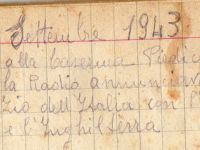 Settembre 1943
alla caserma Piedic
la Radio annunciav
zio dell'Italia con l'
e l'Inghilterra